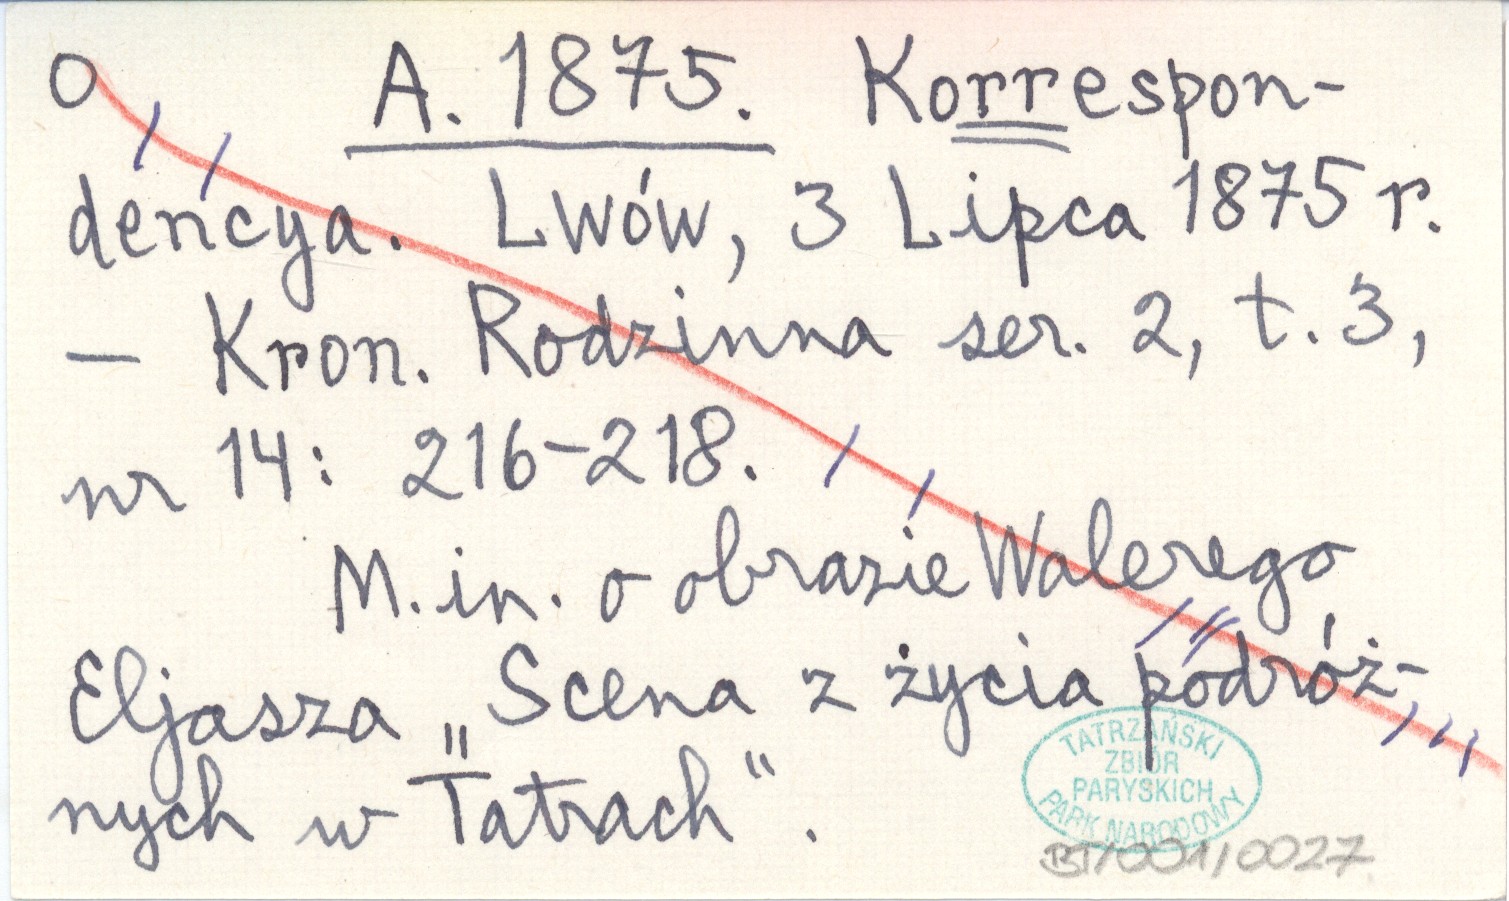 O A. 1875. Korrespon-
dencya. Lwów, 3 Lipca 1875 r.
— Kron. Rodzinna ser. 2, t. 3,
nr 14: 216-218.
M. in. o obrazie Walerego
Eljasza „Scena z życia podróż-
nych w Tatrach".
TATRZAŃSKI
ZBIÓR
PARYSKICH
PARK NARODOWY
BT/001/0027